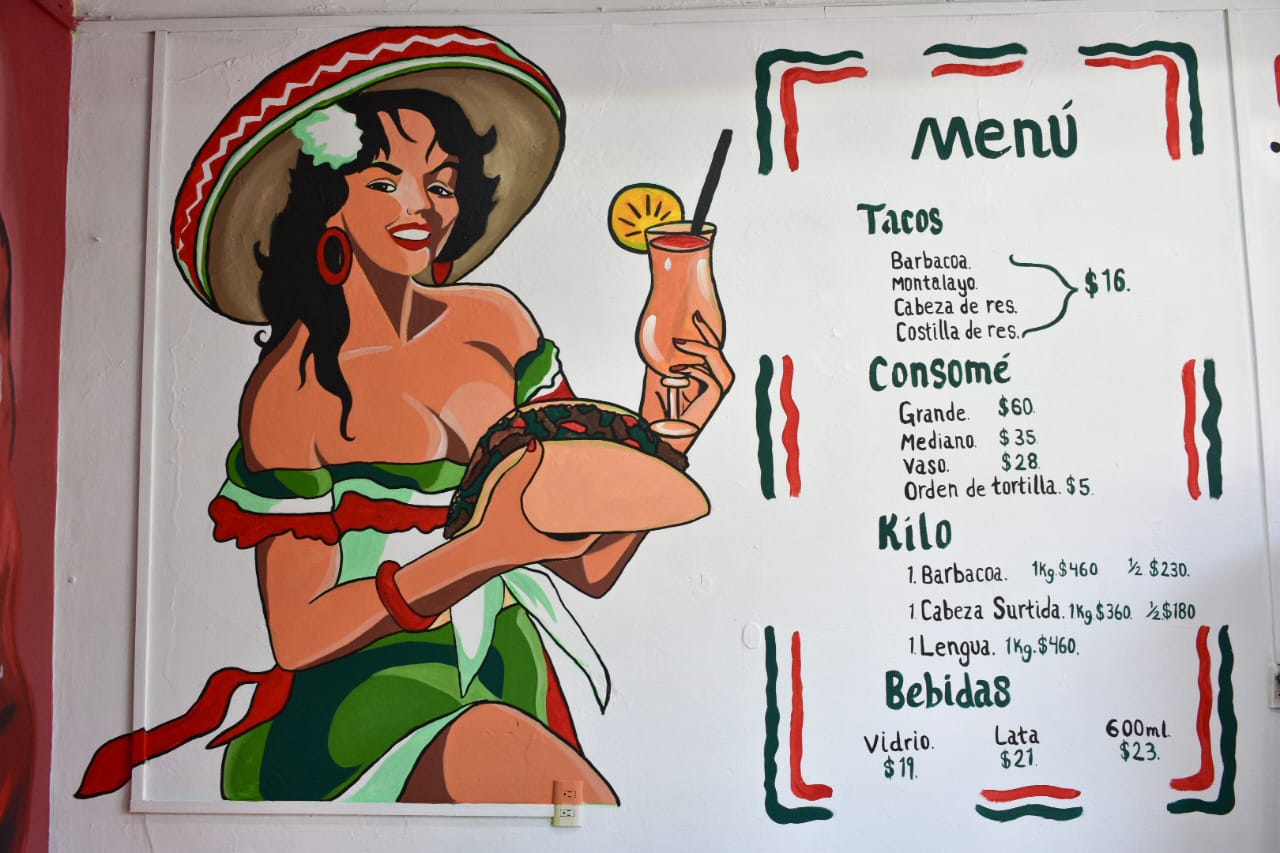 Menú
Tacos
Barbacoa.
Montalayo.
Cabeza de res.
Costilla de res.
$16.
Consomé
Grande. $60.
Mediano. $35
Vaso. $28.
Orden de tortilla. $5.
Kilo
1. Barbacoa. 1kg. $460 ½ $230.
1. Cabeza Surtida. 1kg $360 ½ $180
1. Lengua. 1kg. $460.
Bebidas
Vidrio. Lata 600ml.
$19. $21. $23.